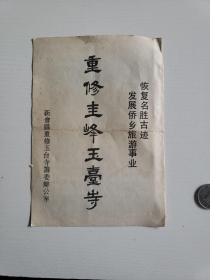 恢复名胜古迹
发展侨乡旅游事业
重修圭峰玉臺寺
新會縣重修玉台寺筹委辦公室